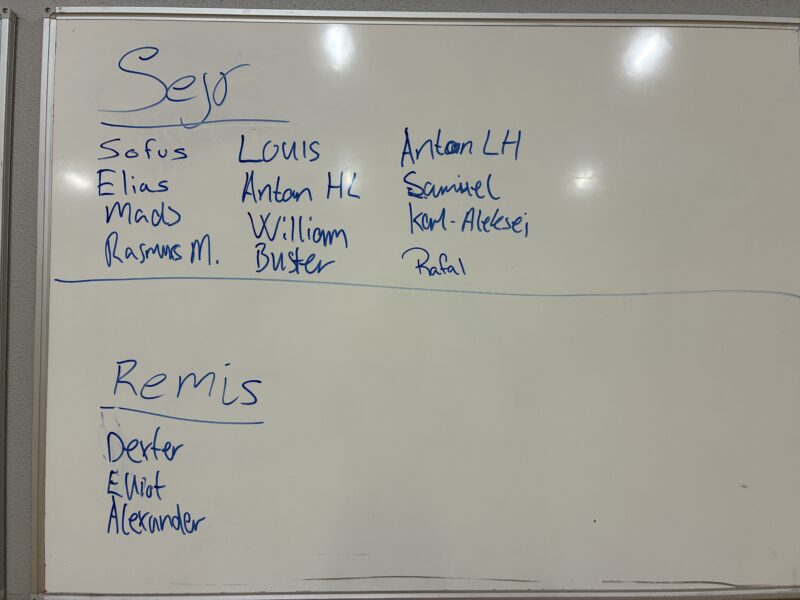 Sejr
Sofus Louis Anton LH
Elias Anton HL Samuel
Mads William Karl-Aleksej
Rasmus M. Buster Rafal
Remis
Dexter
Elliot
Alexander